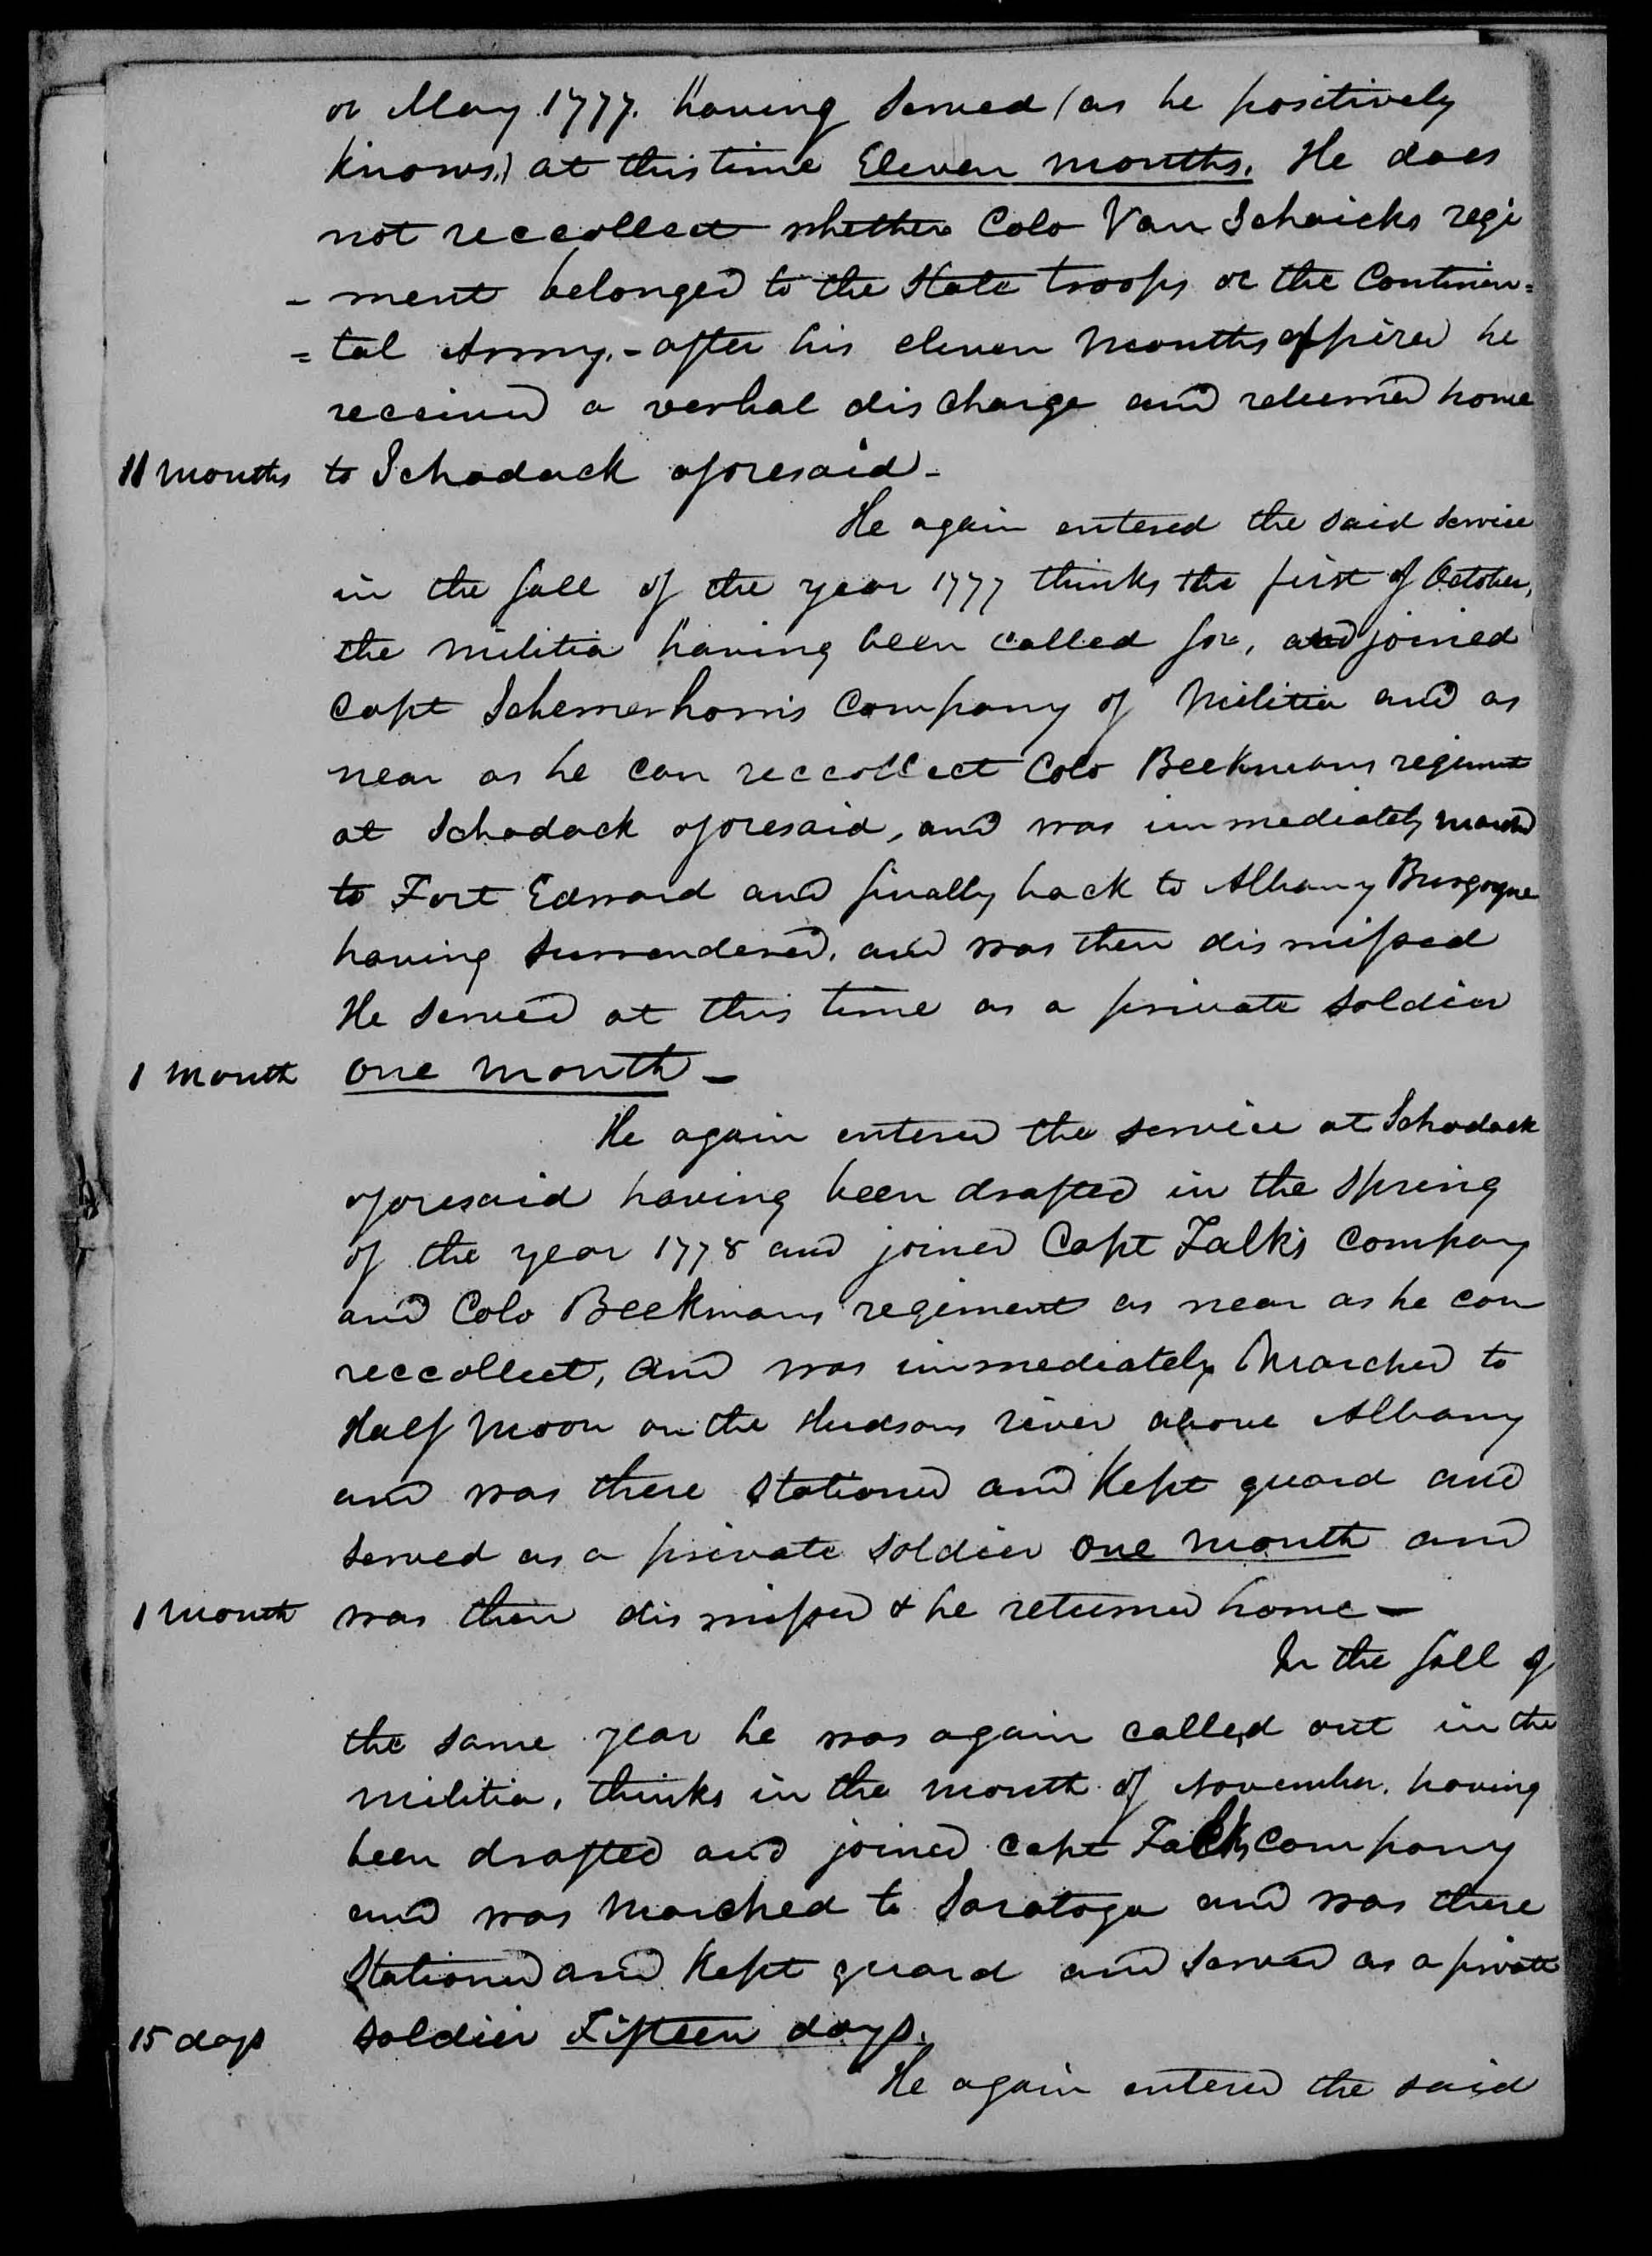 or May 1777. having served (as he positively
knows,) at this time Eleven months. He does
not reccollect whether Colo Van Schaicks regi
- ment belonged to the State troops or the Continen=
= tal Army. - after his eleven months expired he
received a verbal discharge and returned home
11 months to Schodack aforesaid -
He again entered the said service
in the fall of the year 1777 thinks the first of October,
the militia having been called for, and joined
Capt Schermerhorn's Company of Militia and as
near as he can reccollect Colo Beekmans regiment
at Schodack aforesaid, and was immediately marched
to Fort Edward and finally back to Albany Burgoyne
having surrendered, and was then dismissed
He served at this time as a private soldier
1 month one month -
He again entered the service at Schodack
aforesaid having been drafted in the spring
of the year 1778 and joined Capt Falk's Company
and Colo Beekmans regiment as near as he can
reccollect, and was immediately marched to
Half Moon on the Hudsons river above Albany
and was there stationed and kept guard and
served as a private soldier one month and
1 month was then dismissed & he returned home -
In the fall of
the same year he was again called out in the
militia, thinks in the month of November. having
been drafted and joined Capt Falks Company
and was marched to Saratoga and was there
stationed and kept guard and served as a private
15 days soldier Fifteen days.
He again entered the said